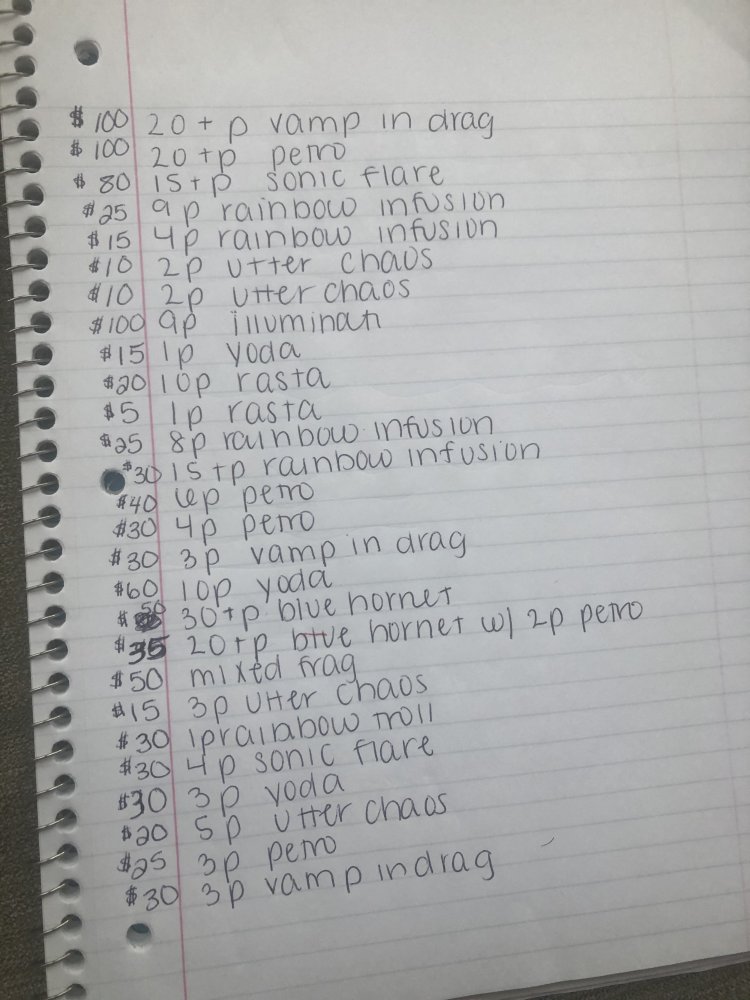 $100 20+p vamp in drag
$100 20+p petro
$80 15+p sonic flare
$25 9p rainbow infusion
$15 4p rainbow infusion
$10 2p utter chaos
$10 2p utter chaos
$100 9p illuminati
$15 1p yoda
$20 10p rasta
$5 1p rasta
$25 8p rainbow infusion
$30 15+p rainbow infusion
$40 6p petro
$30 4p petro
$30 3p vamp in drag
$60 10p yoda
$50 30+p blue hornet
$35 20+p blue hornet w/ 2p petro
$50 mixed frag
$15 3p utter chaos
$30 1p rainbow troll
$30 4p sonic flare
$30 3p yoda
$20 5p utter chaos
$25 3p petro
$30 3p vamp in drag